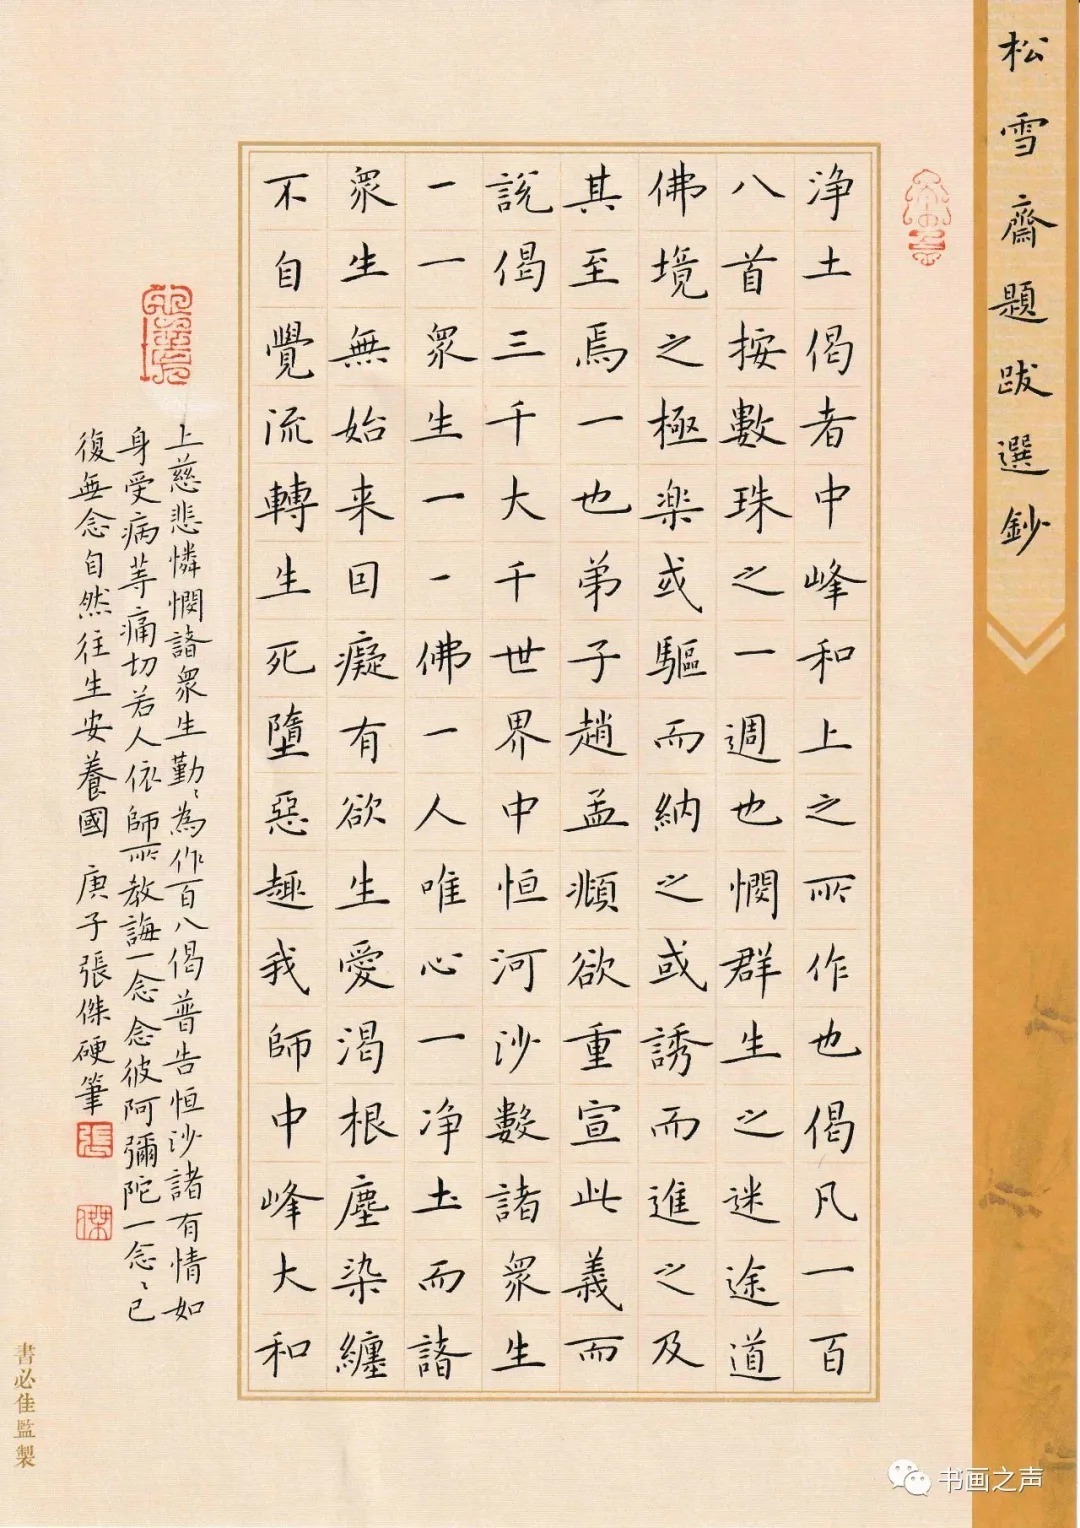 松雪齋題跋選鈔
淨土偈者中峰和上之所作也偈凡一百
八首按數珠之一週也憫群生之迷途道
佛境之極楽或驅而納之或誘而進之及
其至焉一也弟子趙孟頫欲重宣此義而
說偈三千大千世界中恒河沙數諸眾生
一一眾生一一佛一人唯心一淨土而諸
眾生無始来回癡有欲生愛渴根塵染纏
不自覺流轉生死墮惡趣我師中峰大和
上慈悲憐憫諸眾生勤〻為作百八偈普告恒沙諸有情如
身受病等痛切若人依師所教誨一念念彼阿彌陀一念〻已
復無念自然往生安養國 庚子張傑硬筆
張
傑
書必佳監製
书画之声